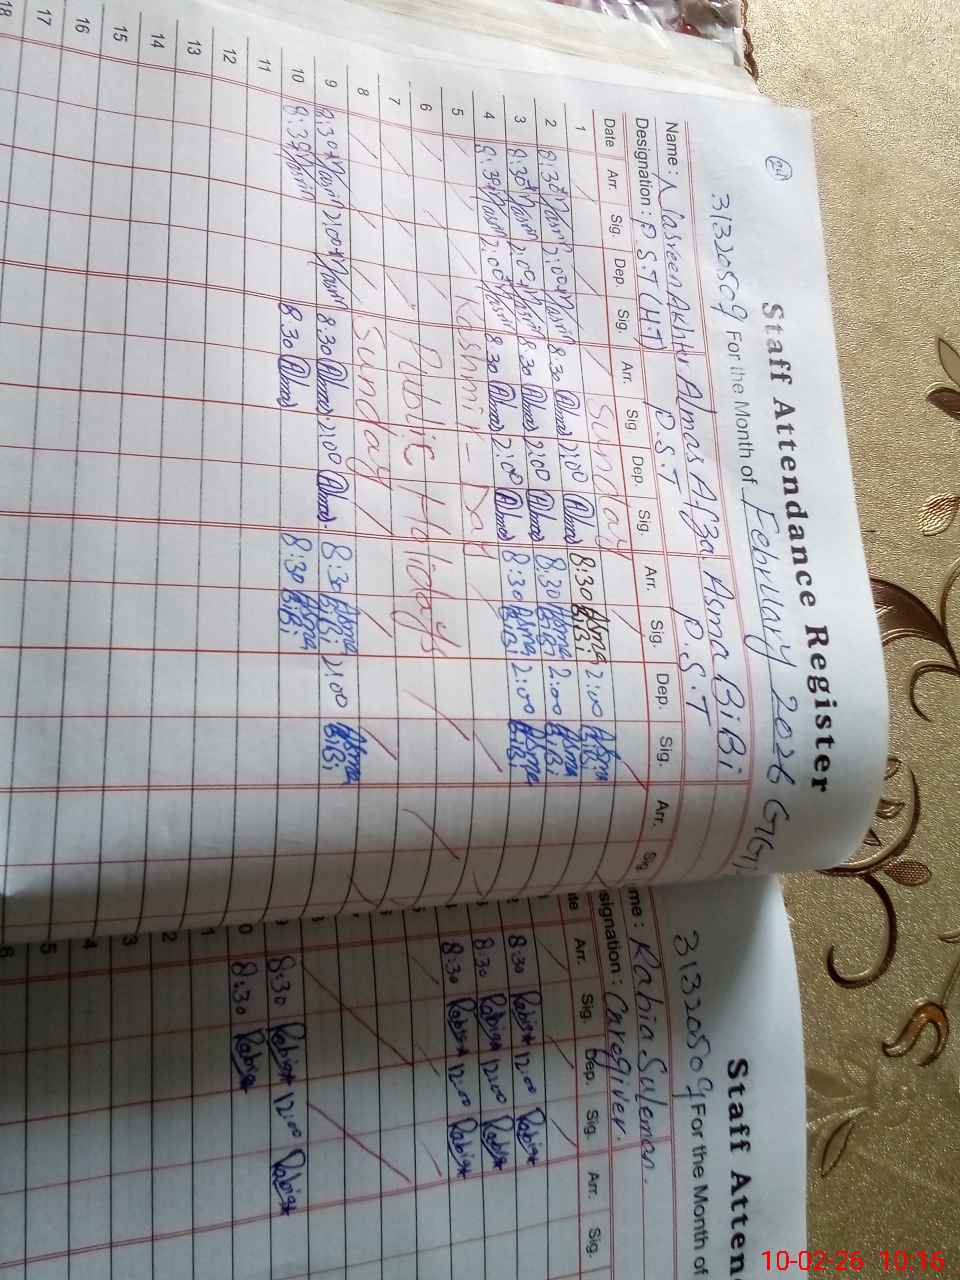 Staff Attendance Register
31320509 For the Month of February 2026
Name : Nasreen Akhter Almas Afza Asma BiBi
Designation : P.S.T (H.T) P.S.T P.S.T
Date Arr. Sig. Dep. Sig. Arr. Sig. Dep. Sig. Arr. Sig. Dep. Sig. Arr. Sig.
1 Sunday
2 8:30 Nasrin 2:00 Nasrin 8:30 Almas 2:00 Almas 8:30 Asma BiBi 2:00 Asma BiBi
3 8:30 Nasrin 2:00 Nasrin 8:30 Almas 2:00 Almas 8:30 Asma BiBi 2:00 Asma BiBi
4 8:30 Nasrin 2:00 Nasrin 8:30 Almas 2:00 Almas 8:30 Asma BiBi 2:00 Asma BiBi
5 Kashmir - Day
6 Public Holidays
7
8 Sunday
9 8:30 Nasrin 2:00 Nasrin 8:30 Almas 2:00 Almas 8:30 Asma BiBi 2:00 Asma BiBi
10 8:30 Nasrin 8:30 Almas 8:30 Asma BiBi
11
12
13
14
15
16
17
18
Staff Atten
31320509 For the Month of
me : Rabia Suleman.
signation : Caregiver.
te Arr. Sig. Dep. Sig. Arr. Sig.
8:30 Rabia 12:00 Rabia
8:30 Rabia 12:00 Rabia
8:30 Rabia 12:00 Rabia
8:30 Rabia 12:00 Rabia
0 8:30 Rabia
1
2
3
4
5
6
10-02-26 10:16